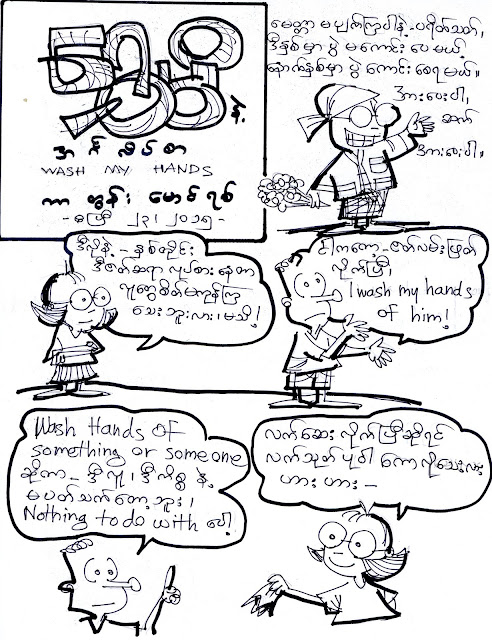 နဲ့
အင်္ဂလိပ်စာ
WASH MY HANDS
ကာတွန်း မောင်ရစ်
ဧပြီ ၂၃၊ ၂၀၁၅
မေတ္တာ မပျက်ကြပါနဲ့ ပရိတ်သတ်၊
ဒီနှစ်မှာ ပွဲ မကောင်း ပေမယ့်
နောက်နှစ်မှာ ပွဲ ကောင်း စေရ မယ်။
အားပေးပါ၊
ဆက်
အားပေးပါ။
ဒီလိုနဲ့ - နှစ်တိုင်း
ဒီဇာတ်ဆရာ လုပ်စားနေတာ
လူတွေစိတ်မကုန်ကြ
သေးဘူးလား၊ မသိ!
ငါကတော့ - ဇာတ်လမ်းဖြတ်
လိုက်ပြီ၊
I wash my hands
of him!
Wash Hands of
something or someone
ဆိုတာ - ဒီလူ၊ ဒီကိစ္စ နဲ့
မပတ်သက်တော့ဘူး၊
Nothing to do with ပေါ့
လက်ဆေး လိုက်ပြီဆိုရင်
လက်သုတ်ပုဝါ ကော လိုသေးလား
ဟား ဟား -